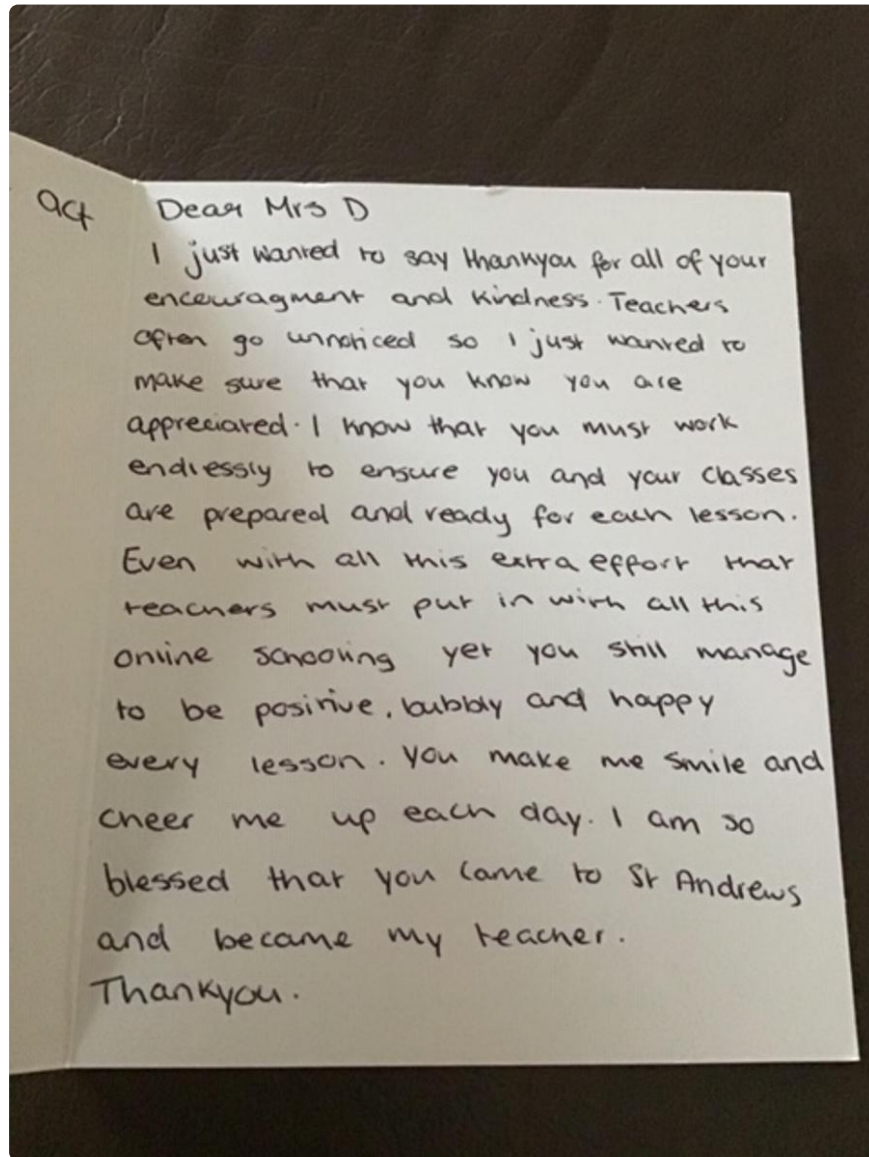 act
Dear Mrs D
I just wanted to say thankyou for all of your
encouragment and kindness. Teachers
often go unnoticed so I just wanted to
make sure that you know you are
appreciated. I know that you must work
endlessly to ensure you and your classes
are prepared and ready for each lesson.
Even with all this extra effort that
teachers must put in with all this
online schooling yet you still manage
to be positive, bubbly and happy
every lesson. You make me smile and
cheer me up each day. I am so
blessed that you came to St Andrews
and became my teacher.
Thankyou.